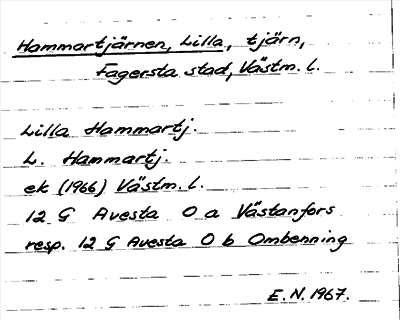 Hammartjärnen, Lilla, tjärn,
Fagersta stad, Västm. l.
Lilla Hammartj.
L. Hammartj.
ek (1966) Västm. l.
12 G Avesta O a Västanfors
resp. 12 G Avesta O b Ombenning
E. N. 1967.